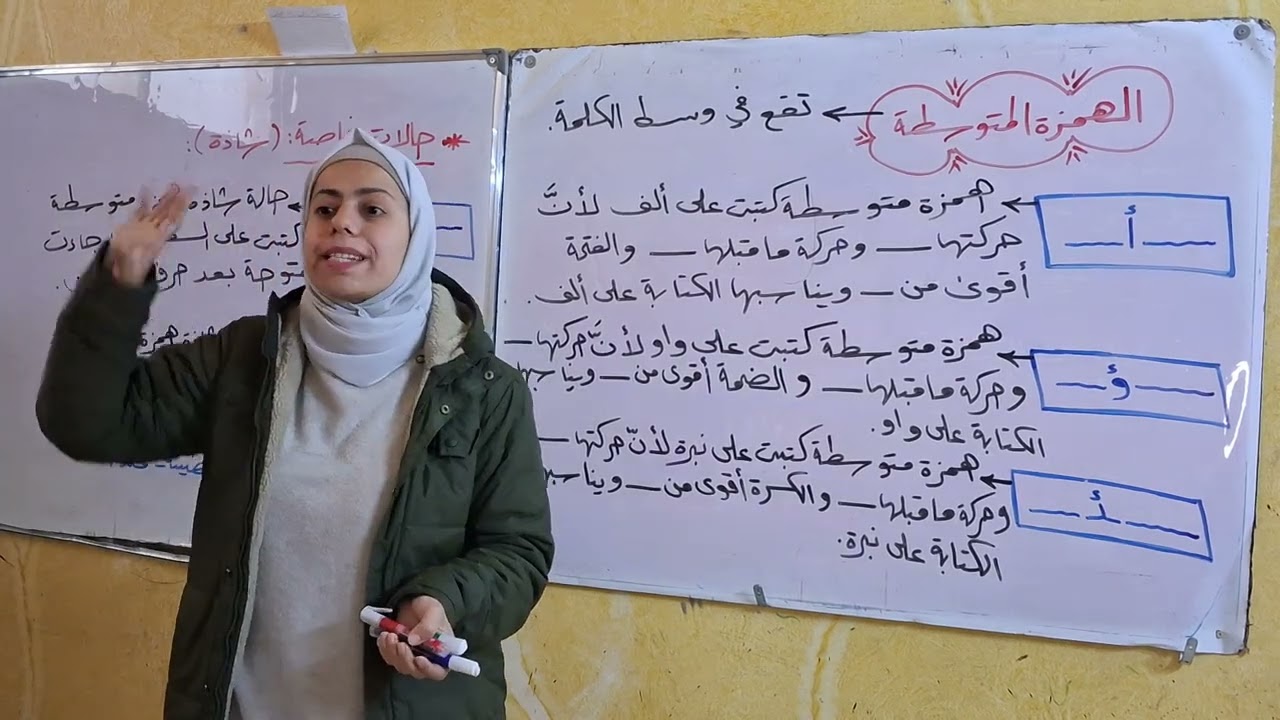 الهمزة المتوسطة ← تقع في وسط الكلمة.
ـــ أ ـــ ← همزة متوسطة كتبت على ألف لأنَّ
حركتها ـــ وحركة ما قبلها ـــ والفتحة
أقوى من ـــ ويناسبها الكتابة على ألف.
ـــ ؤ ـــ ← همزة متوسطة كتبت على واو لأنَّ حركتها ـــ
وحركة ما قبلها ـــ والضمة أقوى من ـــ ويناسبها
الكتابة على واو.
ـــ ئـ ـــ ← همزة متوسطة كتبت على نبرة لأنّ حركتها ـــ
وحركة ما قبلها ـــ والكسرة أقوى من ـــ ويناسبها
الكتابة على نبرة.
* حالات خاصة: (شاذة):
حالة شاذة متوسطة
كتبت على جاءت
بعد